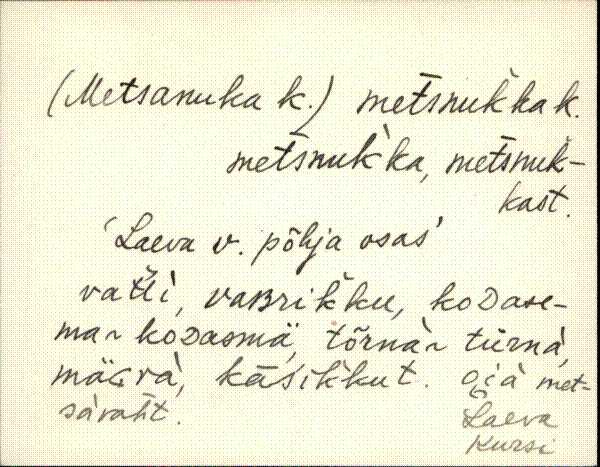 (Metsanuka k.) metsnukka k.
metsnuk'ka, metsnuk-
kast.
'Laeva v. põhja osas'
vat́t́i, vaʙrikku, koᴅase-
ma ~ koᴅasmä, tõrnà ~ türnà,
mäɢrà, kasikkut. ojà met-
savaht.
Laeva
Kursi